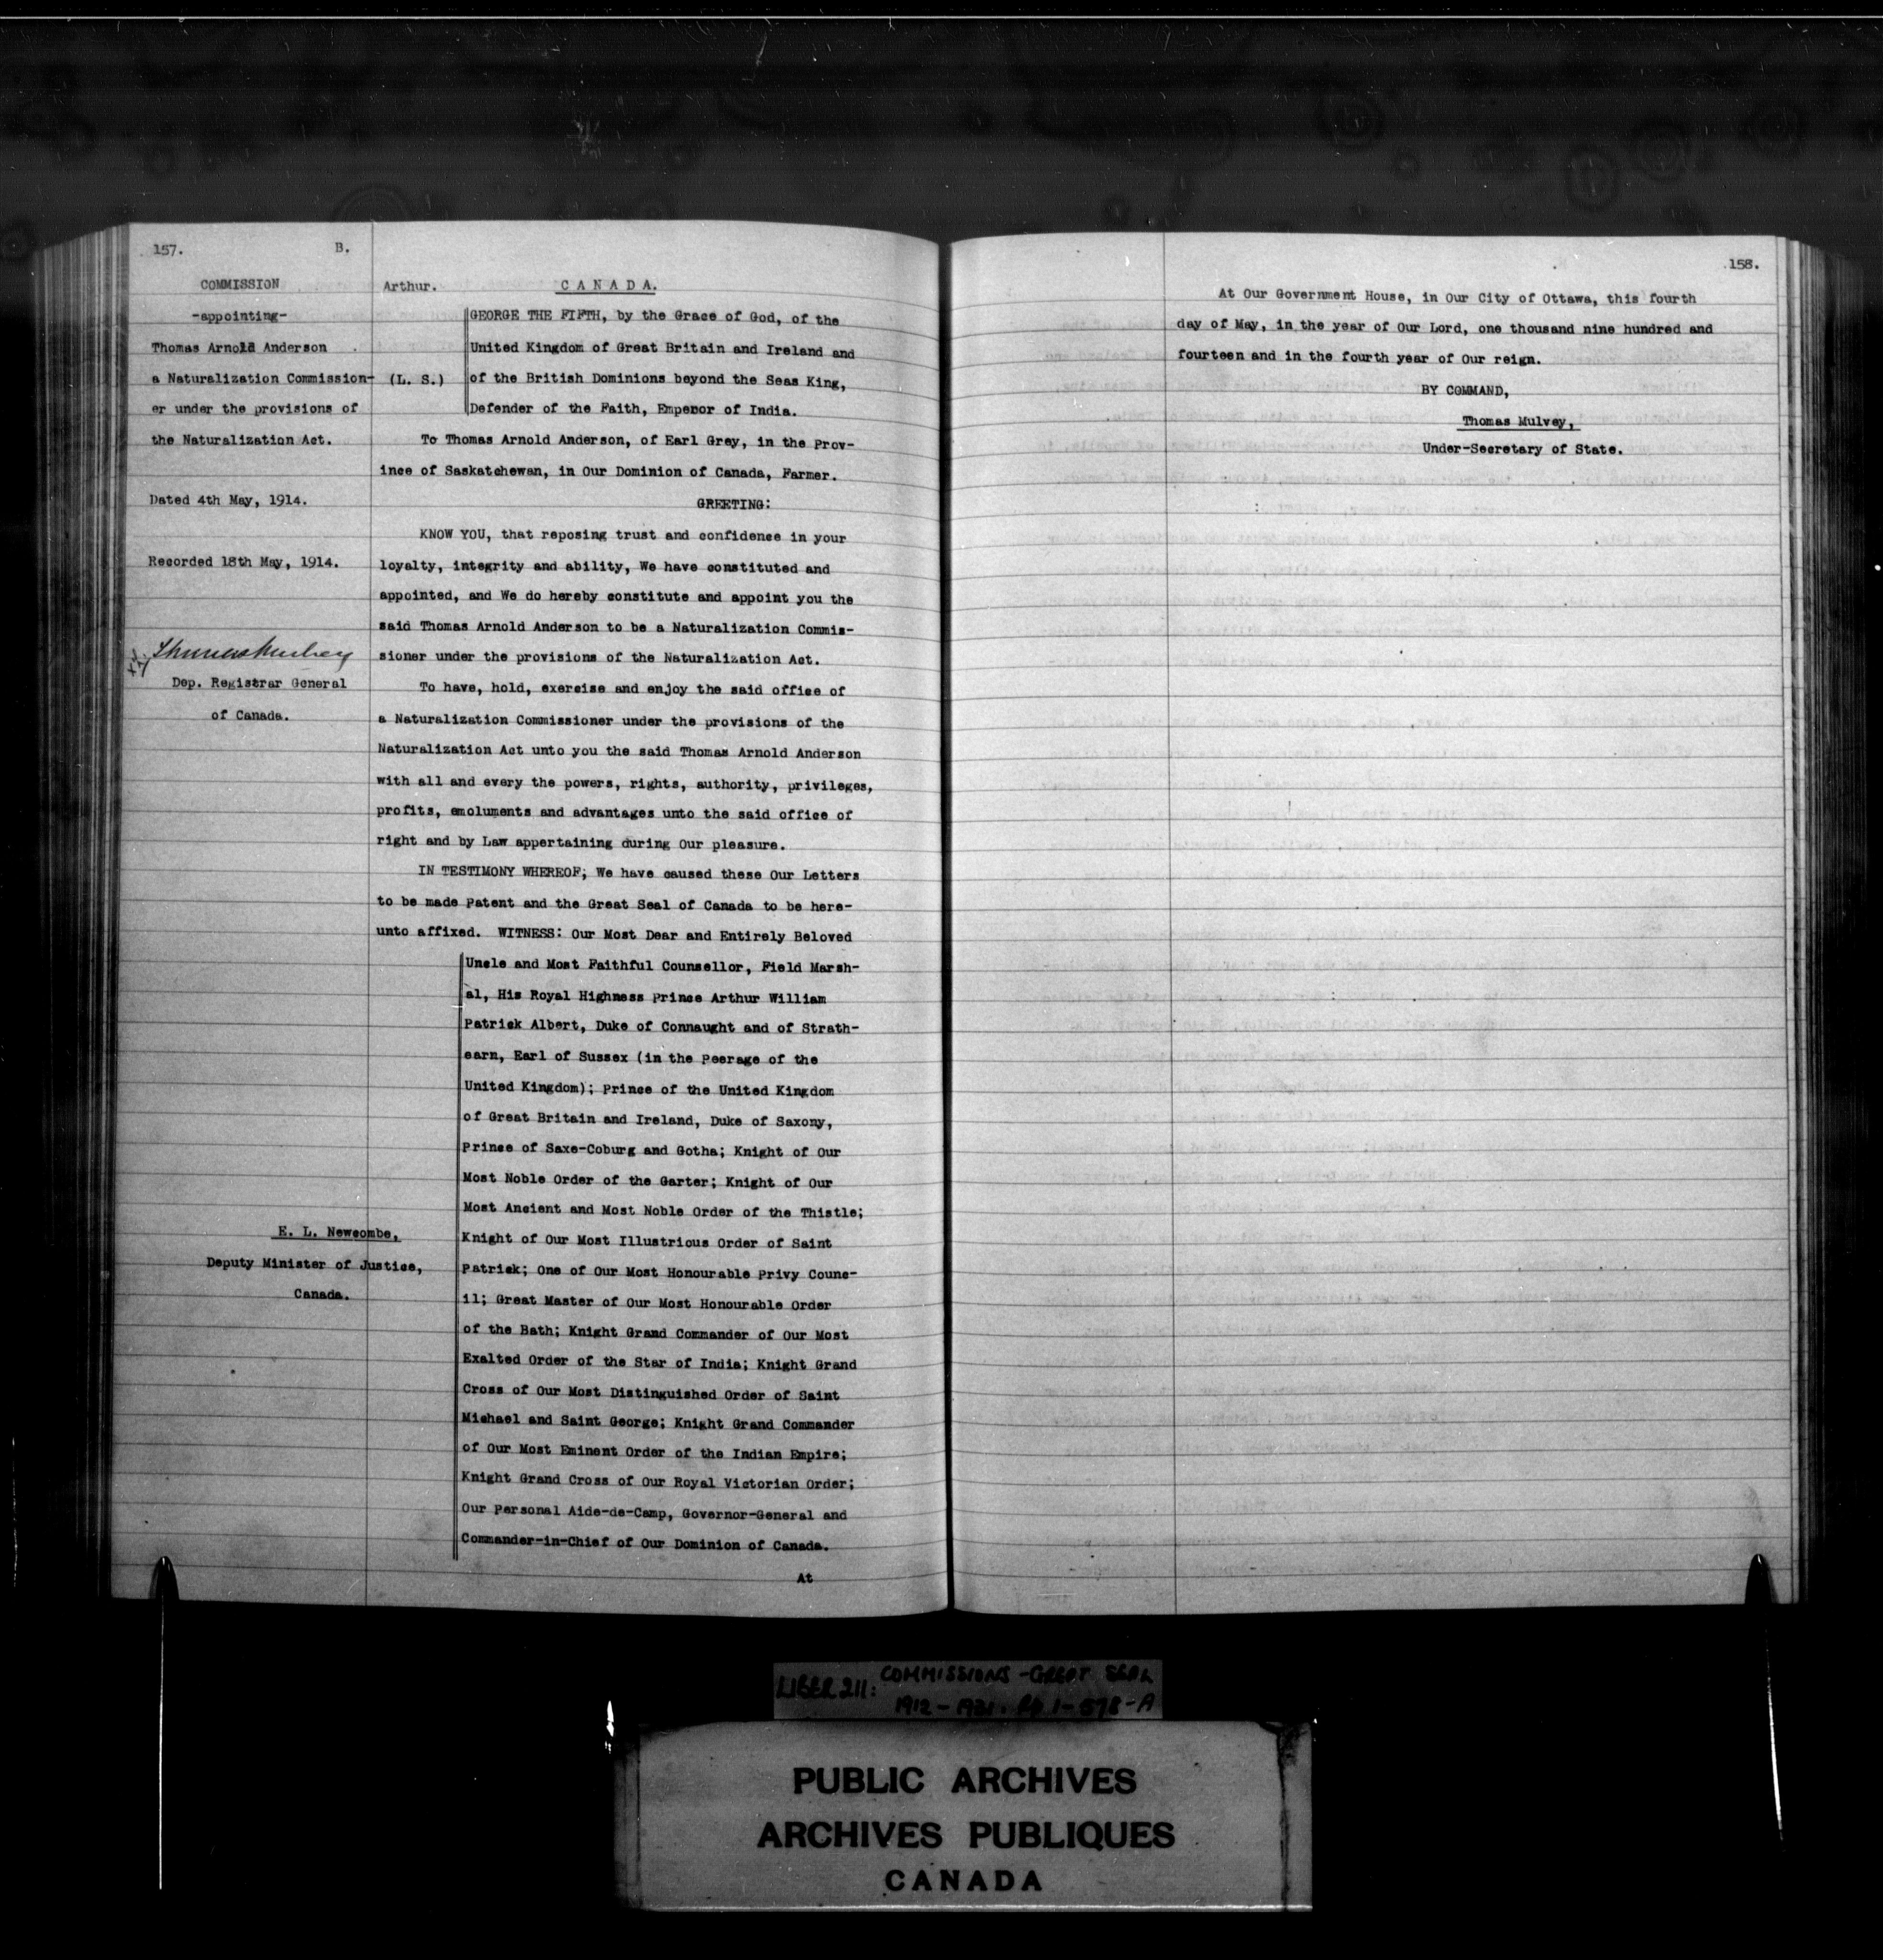 157. B.
COMMISSION
-appointing-
Thomas Arnold Anderson
a Naturalization Commission-
er under the provisions of
the Naturalization Act.
Dated 4th May, 1914.
Recorded 18th May, 1914.
Thomas Mulvey
Dep. Registrar General
of Canada.
E. L. Newcombe,
Deputy Minister of Justice,
Canada.
Arthur. CANADA.
(L. S.)
GEORGE THE FIFTH, by the Grace of God, of the
United Kingdom of Great Britain and Ireland and
of the British Dominions beyond the Seas King,
Defender of the Faith, Emperor of India.
To Thomas Arnold Anderson, of Earl Grey, in the Prov-
ince of Saskatchewan, in Our Dominion of Canada, Farmer.
GREETING:
KNOW YOU, that reposing trust and confidence in your
loyalty, integrity and ability, We have constituted and
appointed, and We do hereby constitute and appoint you the
said Thomas Arnold Anderson to be a Naturalization Commis-
sioner under the provisions of the Naturalization Act.
To have, hold, exercise and enjoy the said office of
a Naturalization Commissioner under the provisions of the
Naturalization Act unto you the said Thomas Arnold Anderson
with all and every the powers, rights, authority, privileges,
profits, emoluments and advantages unto the said office of
right and by Law appertaining during Our pleasure.
IN TESTIMONY WHEREOF; We have caused these Our Letters
to be made Patent and the Great Seal of Canada to be here-
unto affixed. WITNESS: Our Most Dear and Entirely Beloved
Uncle and Most Faithful Counsellor, Field Marsh-
al, His Royal Highness Prince Arthur William
Patrick Albert, Duke of Connaught and of Strath-
earn, Earl of Sussex (in the Peerage of the
United Kingdom); Prince of the United Kingdom
of Great Britain and Ireland, Duke of Saxony,
Prince of Saxe-Coburg and Gotha; Knight of Our
Most Noble Order of the Garter; Knight of Our
Most Ancient and Most Noble Order of the Thistle;
Knight of Our Most Illustrious Order of Saint
Patrick; One of Our Most Honourable Privy Counc-
il; Great Master of Our Most Honourable Order
of the Bath; Knight Grand Commander of Our Most
Exalted Order of the Star of India; Knight Grand
Cross of Our Most Distinguished Order of Saint
Michael and Saint George; Knight Grand Commander
of Our Most Eminent Order of the Indian Empire;
Knight Grand Cross of Our Royal Victorian Order;
Our Personal Aide-de-Camp, Governor-General and
Commander-in-Chief of Our Dominion of Canada.
At
158.
At Our Government House, in Our City of Ottawa, this fourth
day of May, in the year of Our Lord, one thousand nine hundred and
fourteen and in the fourth year of Our reign.
BY COMMAND,
Thomas Mulvey,
Under-Secretary of State.
LIBER 211: COMMISSIONS - GREAT SEAL
1912 - 1921. Pp 1-578-A
PUBLIC ARCHIVES
ARCHIVES PUBLIQUES
CANADA